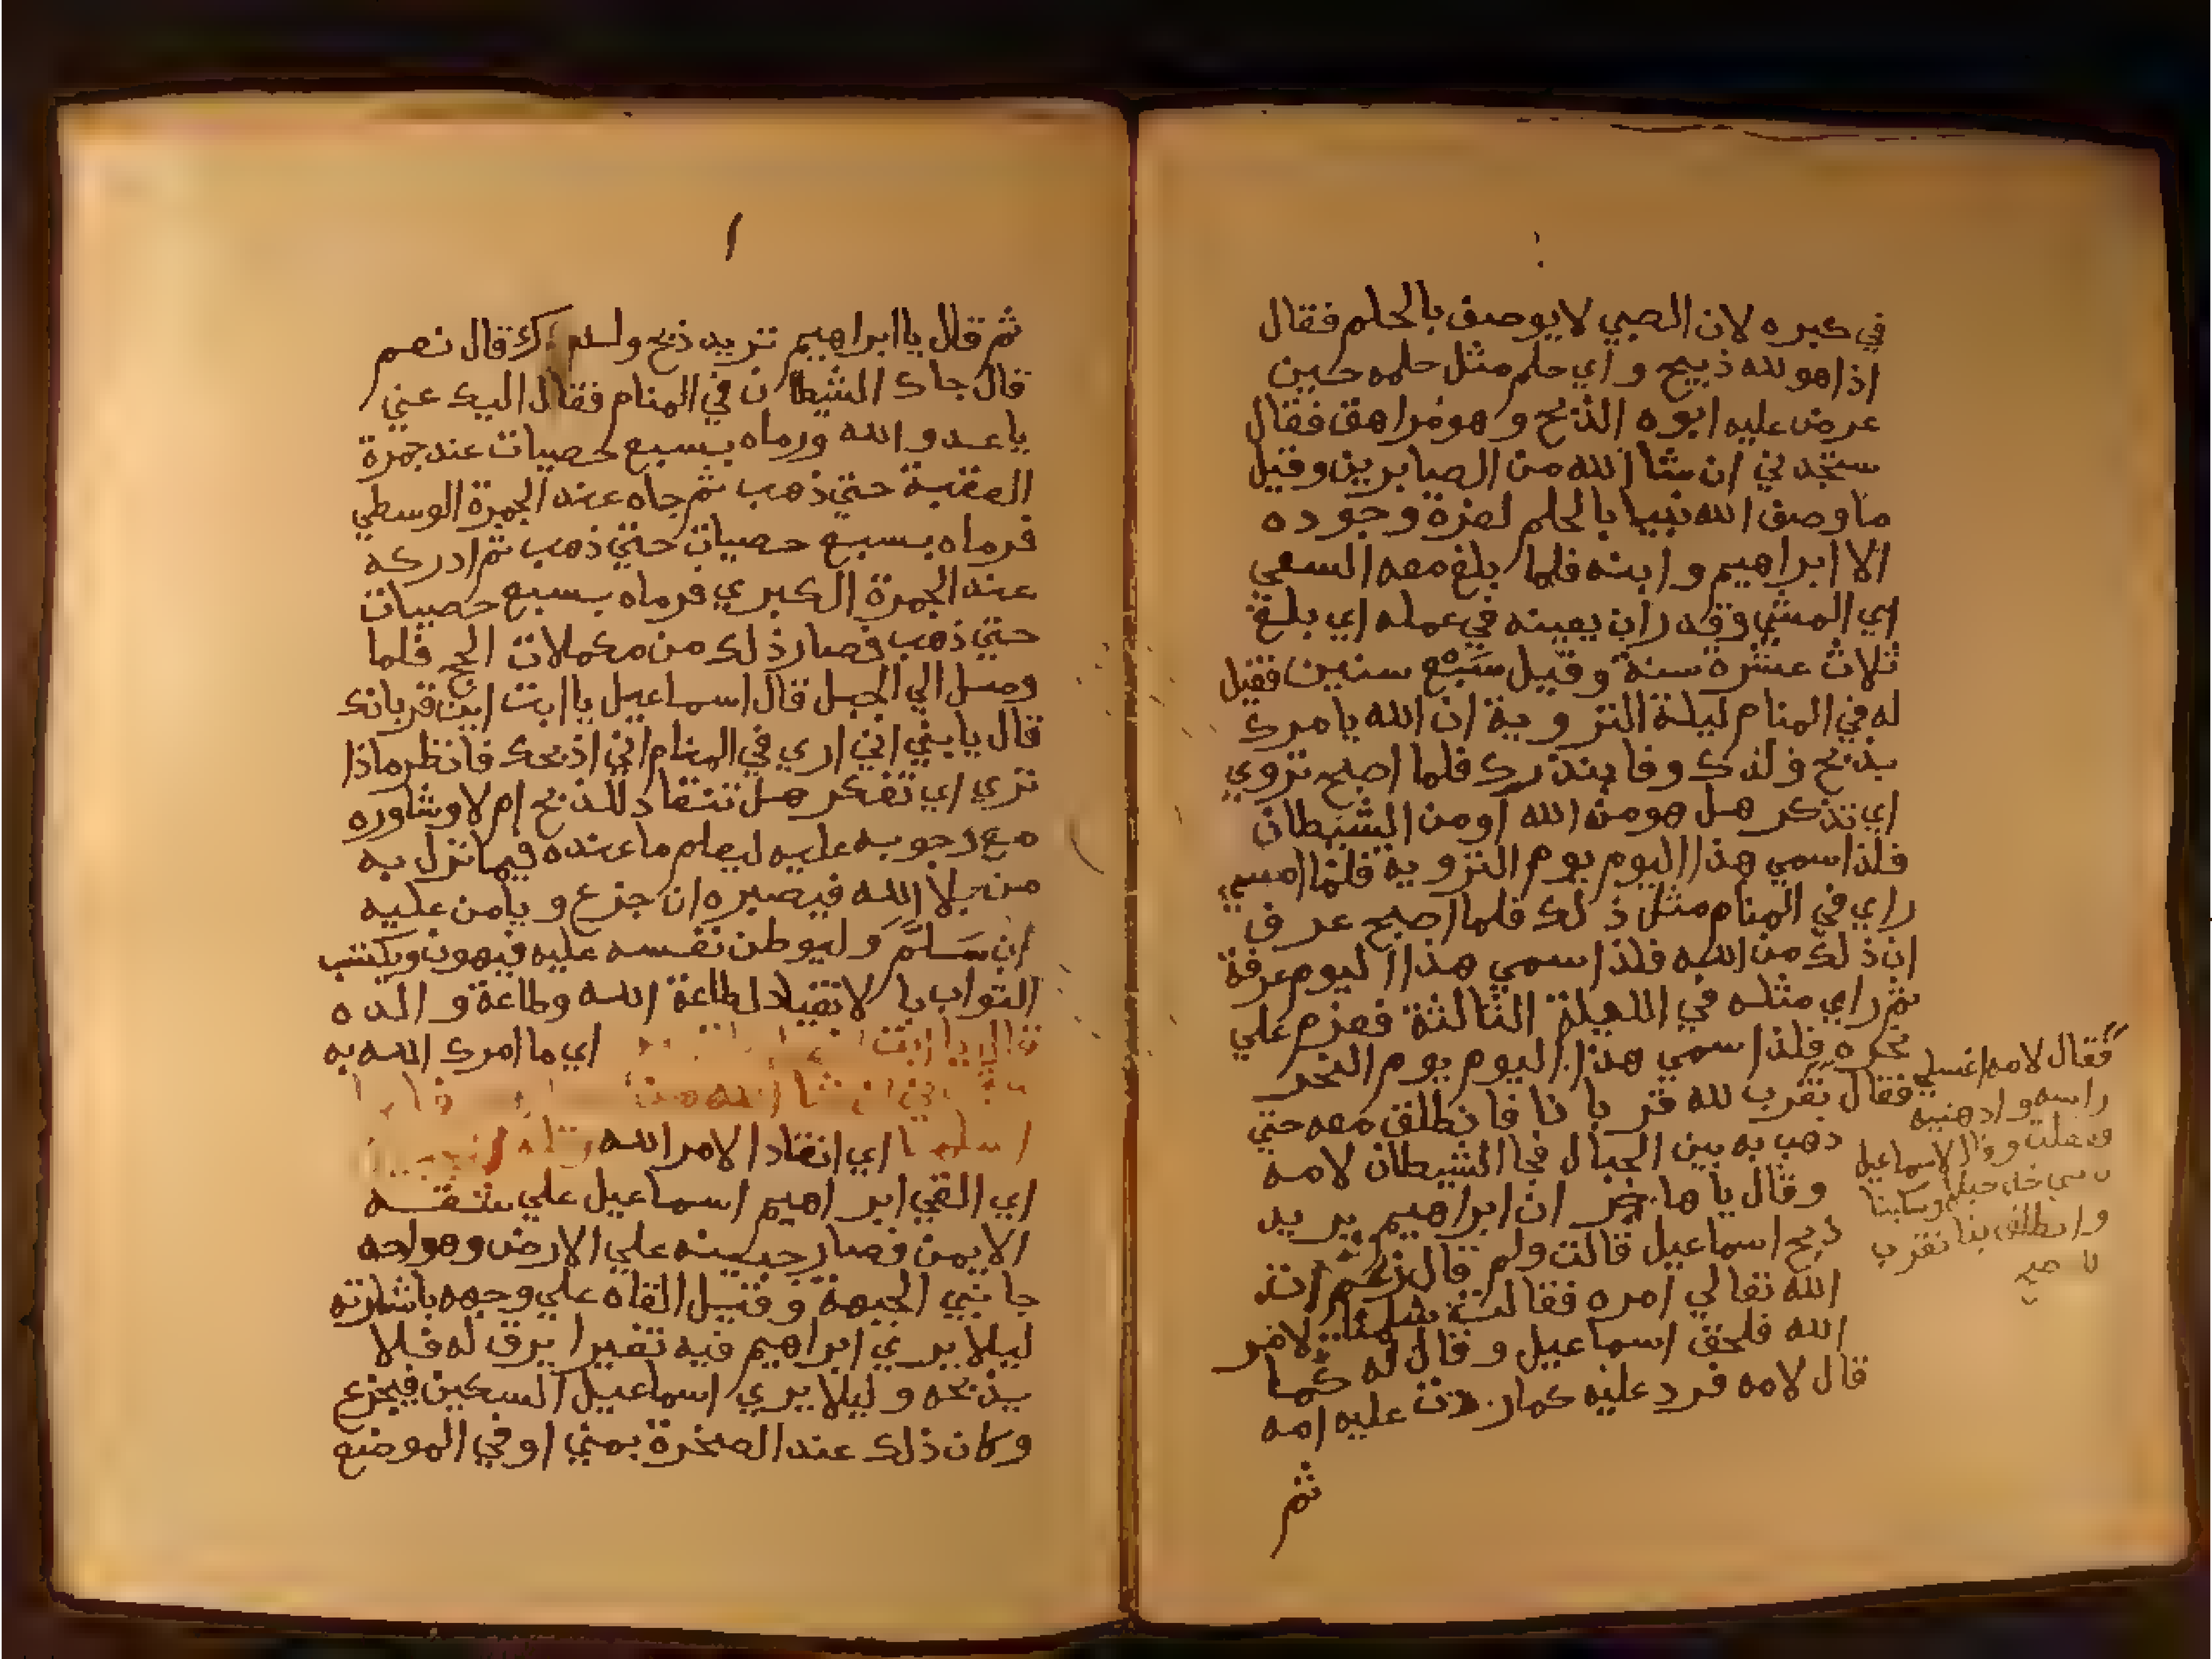 في كبره لان الصبي لا يوصف بالحلم فقال
اذا هو لله ذبيح و اي حلم مثل حلمه حين
عرض عليه ابوه الذبح و هو مراهق فقال
ستجدني ان شا الله من الصابرين وقيل
ما وصف الله نبيا بالحلم لعزة وجوده
الا ابراهيم وابنه فلما بلغ معه السعي
اي المشي وقدر ان يعينه في عمله اي بلغ
ثلاث عشرة سنة وقيل سبع سنين فقيل
له في المنام ليلة التروية ان الله يامرك
بذبح ولدك وفا بنذرك فلما اصبح تروي
اي تذكر هل هو من الله او من الشيطان
فلذا سمي هذا اليوم يوم التروية فلما امسي
راي في المنام مثل ذلك فلما اصبح عرف
ان ذلك من الله فلذا سمي هذا اليوم عرفة
ثم راي مثله في الليلة الثالثة فعزم علي
نحره فلذا سمي هذا اليوم يوم النحر
فقال نقرب لله قربانا فانطلق معه حتي
ذهب به بين الجبال فجا الشيطان لامه
وقال يا هاجر ان ابراهيم يريد
ذبح اسماعيل قالت ولم قال زعم ان
الله تعالي امره فقالت سلمنا لامر
الله فلحق اسماعيل وقال له كما
قال لامه فرد عليه كما ردت عليه امه
ثم
فقال لامه اغسلي
راسه وادهنيه
وقال لاسماعيل
خذ حبلا وسكينا
وانطلق بنا نقرب
ثم قال يا ابراهيم تريد ذبح ولدك قال نعم
قال جاك الشيطان في المنام فقال اليك عني
يا عدو الله ورماه بسبع حصيات عند جمرة
العقبة حتي ذهب ثم جاه عند الجمرة الوسطي
فرماه بسبع حصيات حتي ذهب ثم ادركه
عند الجمرة الكبري فرماه بسبع حصيات
حتي ذهب فصار ذلك من مكملات الحج فلما
وصل الي الجبل قال اسماعيل يا ابت اين قربانك
قال يا بني اني اري في المنام اني اذبحك فانظر ماذا
تري اي تفكر هل تنقاد للذبح ام لا وشاوره
مع وجوبه عليه ليعلم ما عنده فيما نزل به
من بلا الله فيصبره ان جزع ويامن عليه
ان سلم وليوطن نفسه عليه فيهون ويكتسب
الثواب بالانقياد لطاعة الله وطاعة والده
قال يا ابت اي ما امرك الله به
ان شا الله من فلما
اسلما اي انقادا لامر الله وتله للجبين
اي القي ابراهيم اسماعيل علي شقه
الايمن فصار جبينه علي الارض وهو احد
جانبي الجبهة وقيل القاه علي وجهه باشارته
ليلا يري ابراهيم فيه تغيرا يرق له فلا
يذبحه وليلا يري اسماعيل السكين فيجزع
وكان ذلك عند الصخرة بمني او في الموضع